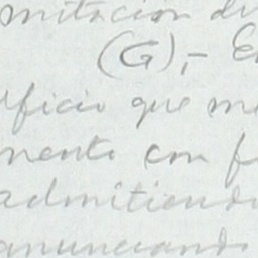 mitación de
(G),- E
ificio que me
mente con f
admitiendo
anunciando